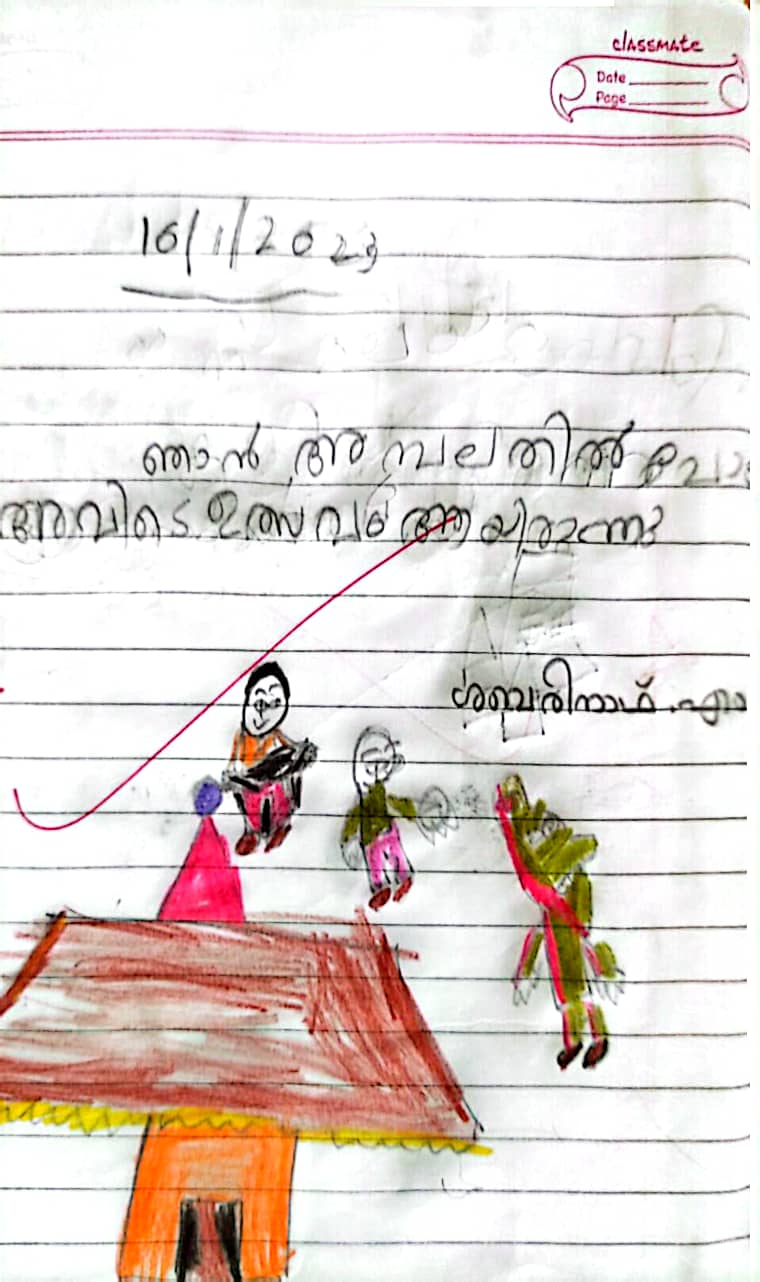 classmate
Date
Page
16/1/2023
ഞാൻ അമ്പലതിൽ പോ
അവിടെ ഉത്സവം ആയിരുന്നു
ശബരിനാഥ്.എം